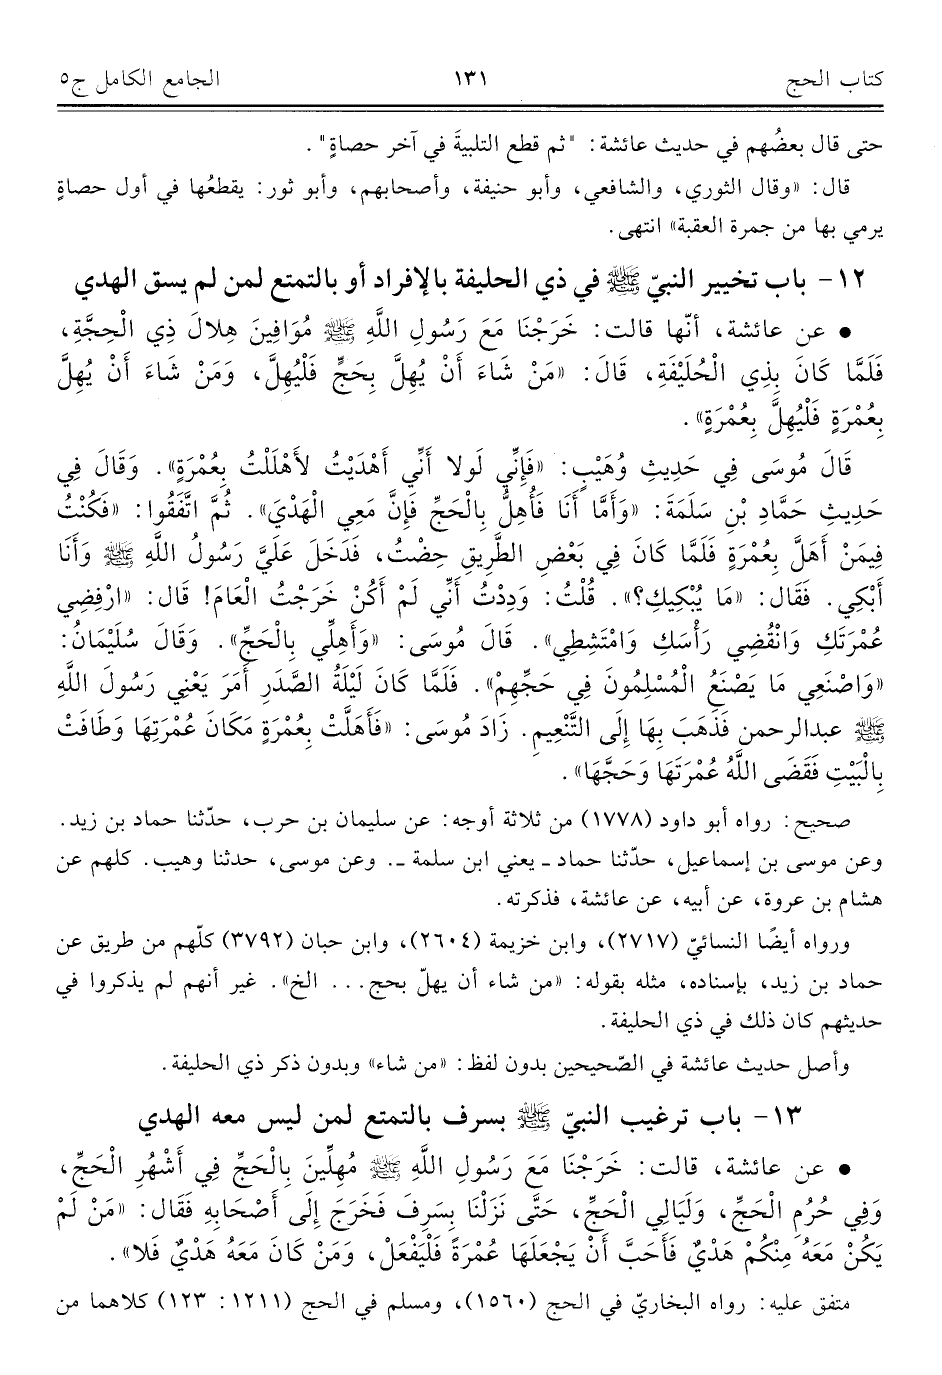 كتاب الحج ١٣١ الجامع الكامل ج٥
حتى قال بعضُهم في حديث عائشة: "ثم قطع التلبيةَ في آخر حصاةٍ".
قال: «وقال الثوري، والشافعي، وأبو حنيفة، وأصحابهم، وأبو ثور: يقطعُها في أول حصاةٍ
يرمي بها من جمرة العقبة» انتهى.
١٢- باب تخيير النبيّ ﷺ في ذي الحليفة بالإفراد أو بالتمتع لمن لم يسق الهدي
● عن عائشة، أنّها قالت: خَرَجْنَا مَعَ رَسُولِ اللَّهِ ﷺ مُوَافِينَ هِلالَ ذِي الْحِجَّةِ،
فَلَمَّا كَانَ بِذِي الْحُلَيْفَةِ، قَالَ: «مَنْ شَاءَ أَنْ يُهِلَّ بِحَجٍّ فَلْيُهِلَّ، وَمَنْ شَاءَ أَنْ يُهِلَّ
بِعُمْرَةٍ فَلْيُهِلَّ بِعُمْرَةٍ».
قَالَ مُوسَى فِي حَدِيثِ وُهَيْبٍ: «فَإِنِّي لَولا أَنِّي أَهْدَيْتُ لأَهْلَلْتُ بِعُمْرَةٍ». وَقَالَ فِي
حَدِيثِ حَمَّادِ بْنِ سَلَمَةَ: «وَأَمَّا أَنَا فَأُهِلُّ بِالْحَجِّ فَإِنَّ مَعِي الْهَدْيَ». ثُمَّ اتَّفَقُوا: «فَكُنْتُ
فِيمَنْ أَهَلَّ بِعُمْرَةٍ فَلَمَّا كَانَ فِي بَعْضِ الطَّرِيقِ حِضْتُ، فَدَخَلَ عَلَيَّ رَسُولُ اللَّهِ ﷺ وَأَنَا
أَبْكِي. فَقَال: «مَا يُبْكِيكِ؟». قُلْتُ: وَدِدْتُ أَنِّي لَمْ أَكُنْ خَرَجْتُ الْعَامَ! قَال: «ارْفِضِي
عُمْرَتَكِ وَانْقُضِي رَأْسَكِ وَامْتَشِطِي». قَالَ مُوسَى: «وَأَهِلِّي بِالْحَجِّ». وَقَالَ سُلَيْمَانُ:
«وَاصْنَعِي مَا يَصْنَعُ الْمُسْلِمُونَ فِي حَجِّهِمْ». فَلَمَّا كَانَ لَيْلَةُ الصَّدَرِ أَمَرَ يَعْنِي رَسُولَ اللَّهِ
ﷺ عبدالرحمن فَذَهَبَ بِهَا إِلَى التَّنْعِيمِ. زَادَ مُوسَى: «فَأَهَلَّتْ بِعُمْرَةٍ مَكَانَ عُمْرَتِهَا وَطَافَتْ
بِالْبَيْتِ فَقَضَى اللَّهُ عُمْرَتَهَا وَحَجَّهَا».
صحيح: رواه أبو داود (١٧٧٨) من ثلاثة أوجه: عن سليمان بن حرب، حدّثنا حماد بن زيد.
وعن موسى بن إسماعيل، حدّثنا حماد ـ يعني ابن سلمة ـ. وعن موسى، حدثنا وهيب. كلهم عن
هشام بن عروة، عن أبيه، عن عائشة، فذكرته.
ورواه أيضًا النسائيّ (٢٧١٧)، وابن خزيمة (٢٦٠٤)، وابن حبان (٣٧٩٢) كلّهم من طريق عن
حماد بن زيد، بإسناده، مثله بقوله: «من شاء أن يهلّ بحج... الخ». غير أنهم لم يذكروا في
حديثهم كان ذلك في ذي الحليفة.
وأصل حديث عائشة في الصّحيحين بدون لفظ: «من شاء» وبدون ذكر ذي الحليفة.
١٣- باب ترغيب النبيّ ﷺ بسرف بالتمتع لمن ليس معه الهدي
● عن عائشة، قالت: خَرَجْنَا مَعَ رَسُولِ اللَّهِ ﷺ مُهِلِّينَ بِالْحَجِّ فِي أَشْهُرِ الْحَجِّ،
وَفِي حُرُمِ الْحَجِّ، وَلَيَالِي الْحَجِّ، حَتَّى نَزَلْنَا بِسَرِفَ فَخَرَجَ إِلَى أَصْحَابِهِ فَقَال: «مَنْ لَمْ
يَكُنْ مَعَهُ مِنْكُمْ هَدْيٌ فَأَحَبَّ أَنْ يَجْعَلَهَا عُمْرَةً فَلْيَفْعَلْ، وَمَنْ كَانَ مَعَهُ هَدْيٌ فَلا».
متفق عليه: رواه البخاريّ في الحج (١٥٦٠)، ومسلم في الحج (١٢١١: ١٢٣) كلاهما من